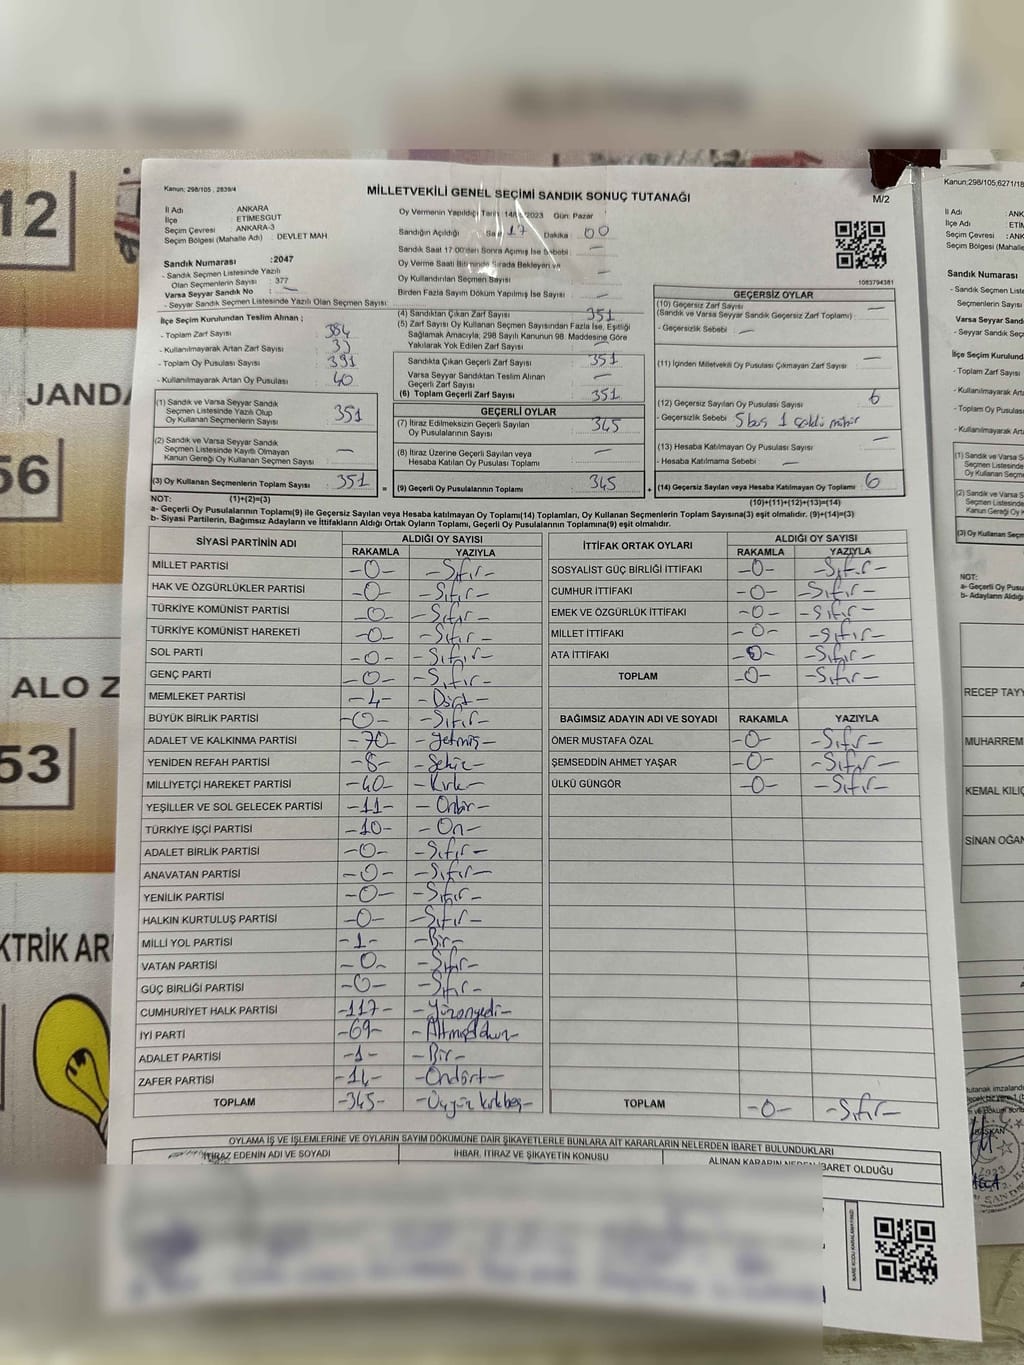 12
56
JANDA
ALO Z
53
KTRİK AR
Kanun; 298/105 , 2839/4
MİLLETVEKİLİ GENEL SEÇİMİ SANDIK SONUÇ TUTANAĞI
M/2
İl Adı : ANKARA
İlçe : ETİMESGUT
Seçim Çevresi : ANKARA-3
Seçim Bölgesi (Mahalle Adı) : DEVLET MAH
Sandık Numarası : 2047
- Sandık Seçmen Listesinde Yazılı
Olan Seçmenlerin Sayısı : 377
Varsa Seyyar Sandık No : —
- Seyyar Sandık Seçmen Listesinde Yazılı Olan Seçmen Sayısı:
Oy Vermenin Yapıldığı Tarih 2023 Gün: Pazar
Sandığın Açıldığı Saat 17 Dakika : 00
Sandık Saat 17.00'den Sonra Açılmış İse Sebebi : —
Oy Verme Saati Bitiminde Sırada Bekleyen ve
Oy Kullandırılan Seçmen Sayısı : —
Birden Fazla Sayım Döküm Yapılmış İse Sayısı : —
1083794381
İlçe Seçim Kurulundan Teslim Alınan ;
- Toplam Zarf Sayısı : 384
- Kullanılmayarak Artan Zarf Sayısı : 33
- Toplam Oy Pusulası Sayısı : 391
- Kullanılmayarak Artan Oy Pusulası : 40
(1) Sandık ve Varsa Seyyar Sandık
Seçmen Listesinde Yazılı Olup
Oy Kullanan Seçmenlerin Sayısı : 351
(2) Sandık ve Varsa Seyyar Sandık
Seçmen Listesinde Kayıtlı Olmayan
Kanun Gereği Oy Kullanan Seçmen Sayısı : —
(3) Oy Kullanan Seçmenlerin Toplam Sayısı : 351
(4) Sandıktan Çıkan Zarf Sayısı : 351
(5) Zarf Sayısı Oy Kullanan Seçmen Sayısından Fazla İse, Eşitliği
Sağlamak Amacıyla, 298 Sayılı Kanunun 98. Maddesine Göre
Yakılarak Yok Edilen Zarf Sayısı : —
Sandıkta Çıkan Geçerli Zarf Sayısı : 351
Varsa Seyyar Sandıktan Teslim Alınan
Geçerli Zarf Sayısı : —
(6) Toplam Geçerli Zarf Sayısı : 351
GEÇERLİ OYLAR
(7) İtiraz Edilmeksizin Geçerli Sayılan
Oy Pusulalarının Sayısı : 345
(8) İtiraz Üzerine Geçerli Sayılan veya
Hesaba Katılan Oy Pusulası Toplamı : —
= (9) Geçerli Oy Pusulalarının Toplamı : 345
GEÇERSİZ OYLAR
(10) Geçersiz Zarf Sayısı
(Sandık ve Varsa Seyyar Sandık Geçersiz Zarf Toplamı) : —
- Geçersizlik Sebebi : —
(11) İçinden Milletvekili Oy Pusulası Çıkmayan Zarf Sayısı : —
(12) Geçersiz Sayılan Oy Pusulası Sayısı : 6
- Geçersizlik Sebebi : 5 boş 1 çoklu mühür
(13) Hesaba Katılmayan Oy Pusulası Sayısı : —
- Hesaba Katılmama Sebebi : —
+ (14) Geçersiz Sayılan veya Hesaba Katılmayan Oy Toplamı : 6
NOT: (1)+(2)=(3)
(10)+(11)+(12)+(13)=(14)
a- Geçerli Oy Pusulalarının Toplamı(9) ile Geçersiz Sayılan veya Hesaba katılmayan Oy Toplamı(14) Toplamları, Oy Kullanan Seçmenlerin Toplam Sayısına(3) eşit olmalıdır. (9)+(14)=(3)
b- Siyasi Partilerin, Bağımsız Adayların ve İttifakların Aldığı Ortak Oyların Toplamı, Geçerli Oy Pusulalarının Toplamına(9) eşit olmalıdır.
SİYASİ PARTİNİN ADI ALDIĞI OY SAYISI
RAKAMLA YAZIYLA
MİLLET PARTİSİ -0- -Sıfır-
HAK VE ÖZGÜRLÜKLER PARTİSİ -0- -Sıfır-
TÜRKİYE KOMÜNİST PARTİSİ -0- -Sıfır-
TÜRKİYE KOMÜNİST HAREKETİ -0- -Sıfır-
SOL PARTİ -0- -Sıfır-
GENÇ PARTİ -0- -Sıfır-
MEMLEKET PARTİSİ -4- -Dört-
BÜYÜK BİRLİK PARTİSİ -0- -Sıfır-
ADALET VE KALKINMA PARTİSİ -70- -Yetmiş-
YENİDEN REFAH PARTİSİ -8- -Sekiz-
MİLLİYETÇİ HAREKET PARTİSİ -40- -Kırk-
YEŞİLLER VE SOL GELECEK PARTİSİ -11- -Onbir-
TÜRKİYE İŞÇİ PARTİSİ -10- -On-
ADALET BİRLİK PARTİSİ -0- -Sıfır-
ANAVATAN PARTİSİ -0- -Sıfır-
YENİLİK PARTİSİ -0- -Sıfır-
HALKIN KURTULUŞ PARTİSİ -0- -Sıfır-
MİLLİ YOL PARTİSİ -1- -Bir-
VATAN PARTİSİ -0- -Sıfır-
GÜÇ BİRLİĞİ PARTİSİ -0- -Sıfır-
CUMHURİYET HALK PARTİSİ -117- -Yüzonyedi-
İYİ PARTİ -69- -Altmışdokuz-
ADALET PARTİSİ -1- -Bir-
ZAFER PARTİSİ -14- -Ondört-
TOPLAM -345- -Üçyüz kırkbeş-
İTTİFAK ORTAK OYLARI ALDIĞI OY SAYISI
RAKAMLA YAZIYLA
SOSYALİST GÜÇ BİRLİĞİ İTTİFAKI -0- -Sıfır-
CUMHUR İTTİFAKI -0- -Sıfır-
EMEK VE ÖZGÜRLÜK İTTİFAKI -0- -Sıfır-
MİLLET İTTİFAKI -0- -Sıfır-
ATA İTTİFAKI -0- -Sıfır-
TOPLAM -0- -Sıfır-
BAĞIMSIZ ADAYIN ADI VE SOYADI RAKAMLA YAZIYLA
ÖMER MUSTAFA ÖZAL -0- -Sıfır-
ŞEMSEDDİN AHMET YAŞAR -0- -Sıfır-
ÜLKÜ GÜNGÖR -0- -Sıfır-
TOPLAM -0- -Sıfır-
OYLAMA İŞ VE İŞLEMLERİNE VE OYLARIN SAYIM DÖKÜMÜNE DAİR ŞİKAYETLERLE BUNLARA AİT KARARLARIN NELERDEN İBARET BULUNDUKLARI
İTİRAZ EDENİN ADI VE SOYADI İHBAR, İTİRAZ VE ŞİKAYETİN KONUSU ALINAN KARARIN NEDEN İBARET OLDUĞU
Kanun;298/105;6271/18
İl Adı : ANK
İlçe : ETİM
Seçim Çevresi : ANK
Seçim Bölgesi (Mahalle
Sandık Numarası
Sandık Seçmen Listesi
Seçmenlerin Sayısı
Varsa Seyyar Sandık
- Seyyar Sandık Seç
İlçe Seçim Kurulund
- Toplam Zarf Sayısı
- Kullanılmayarak Arta
- Toplam Oy Pusulası
- Kullanılmayarak Arta
(1) Sandık ve Varsa S
Seçmen Listesinde
Oy Kullanan Seçme
(2) Sandık ve Varsa S
Seçmen Listesinde
Kanun Gereği Oy K
(3) Oy Kullanan Seçm
NOT:
a- Geçerli Oy Pusulas
b- Adayların Aldığı
RECEP TAYY
MUHARREM
KEMAL KILIÇ
SİNAN OĞAN
BAŞKAN
2023
SANDIK